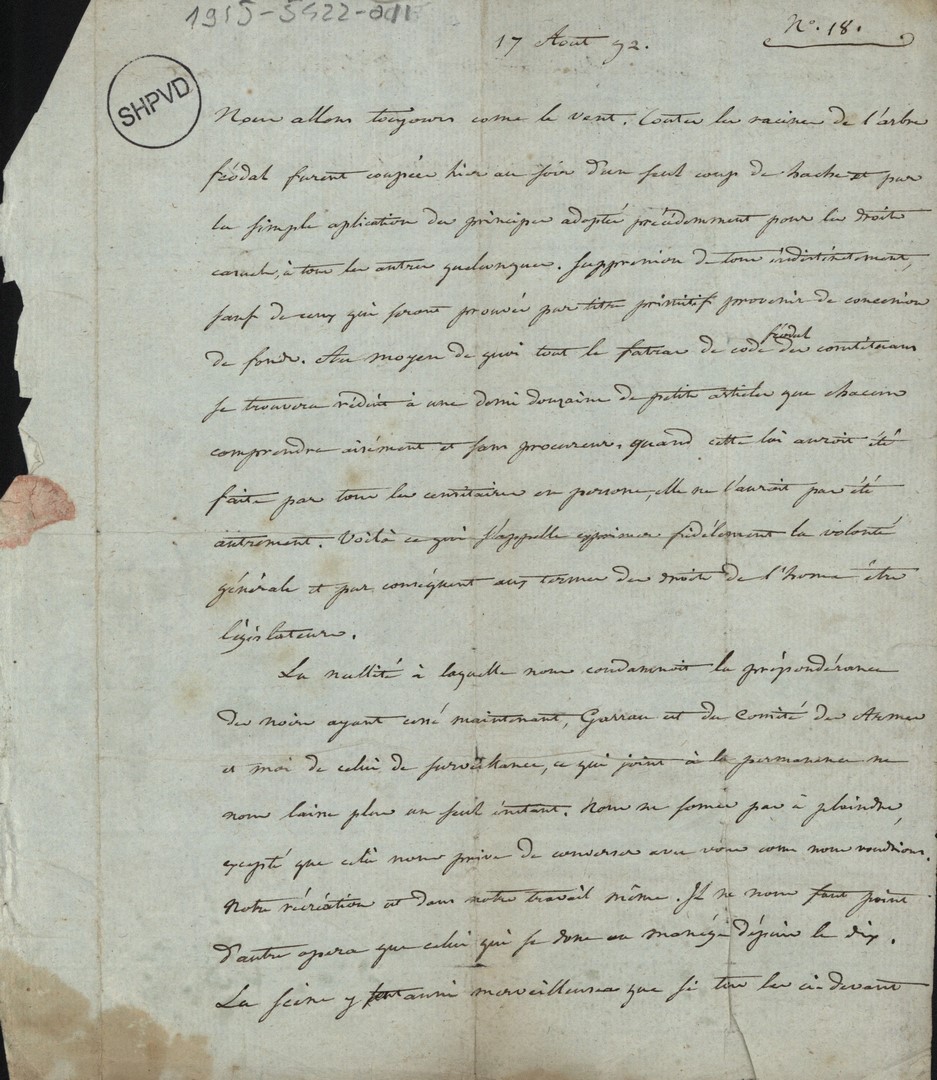 1915-5422-011
N.º 18.
17 Aout 92.
SHPVD
Nous allons toujours come le vent. Toutes les racines de l'arbre
féodal furent coupées hier au soir d'un seul coup de hache et par
la simple aplication du principe adopté précédemment pour les droits
casuels, à tous les autres quelconques. Suppression de tous indistinctement,
sauf de ceux qui seront prouvés par titre primitif provenir de concession
de fonds. Au moyen de quoi tout le fatras de code féodal des constituans
se trouvera réduit à une demi douzaine de petits articles que chacun
comprendra aisément et sans procureur. quand cette loi auroit été
faite par tous les censitaires en persone, elle ne l'auroit pas été
autrement. Voilà ce qui s'appelle exprimer fidèlement la volonté
générale et par conséquent aux termes des droits de l'home être
législateurs.
La nullité à laquelle nous condamnoit la prépondérance
des noirs ayant cessé maintenant, Garrau est du Comité des Armes
et moi de celui de surveillance, ce qui joint à la permanence ne
nous laisse plus un seul instant. Nous ne somes pas à plaindre,
excepté que celà nous prive de converser avec vous come nous voudrions.
Notre récréation est dans notre travail même. Il ne nous faut point
d'autre opera que celui qui se done au manége dépuis le dix.
La scène y est aussi merveilleuse que si tous les ci-devant